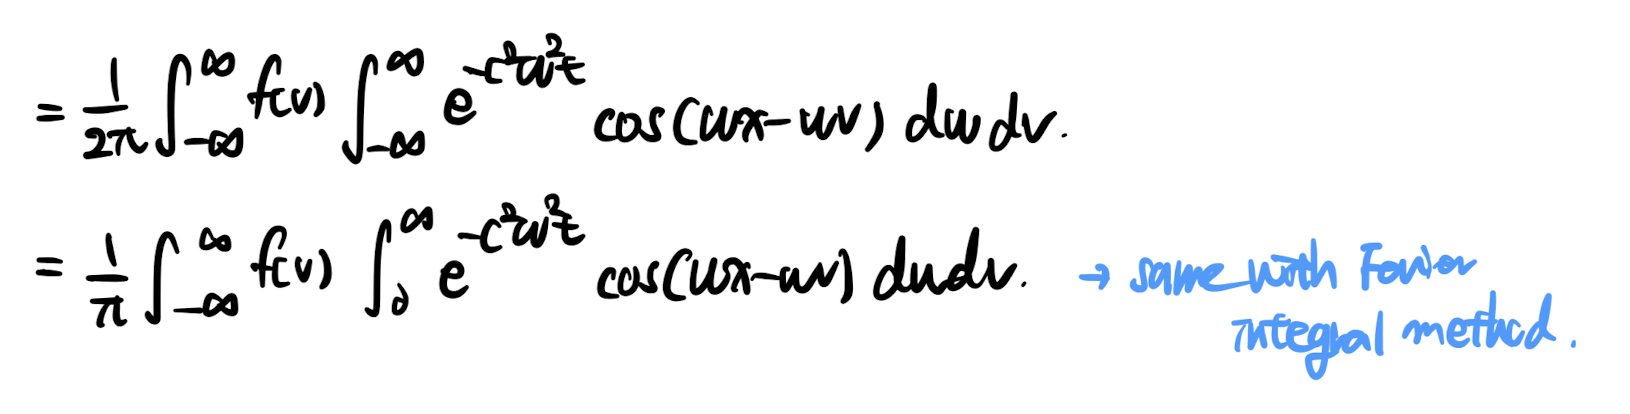 = 1/2π ∫_{-∞}^{∞} f(v) ∫_{-∞}^{∞} e^{-c²w²t} cos(wx-wv) dw dv.
= 1/π ∫_{-∞}^{∞} f(v) ∫_0^{∞} e^{-c²w²t} cos(wx-wv) dw dv. → same with Fourier
integral method.